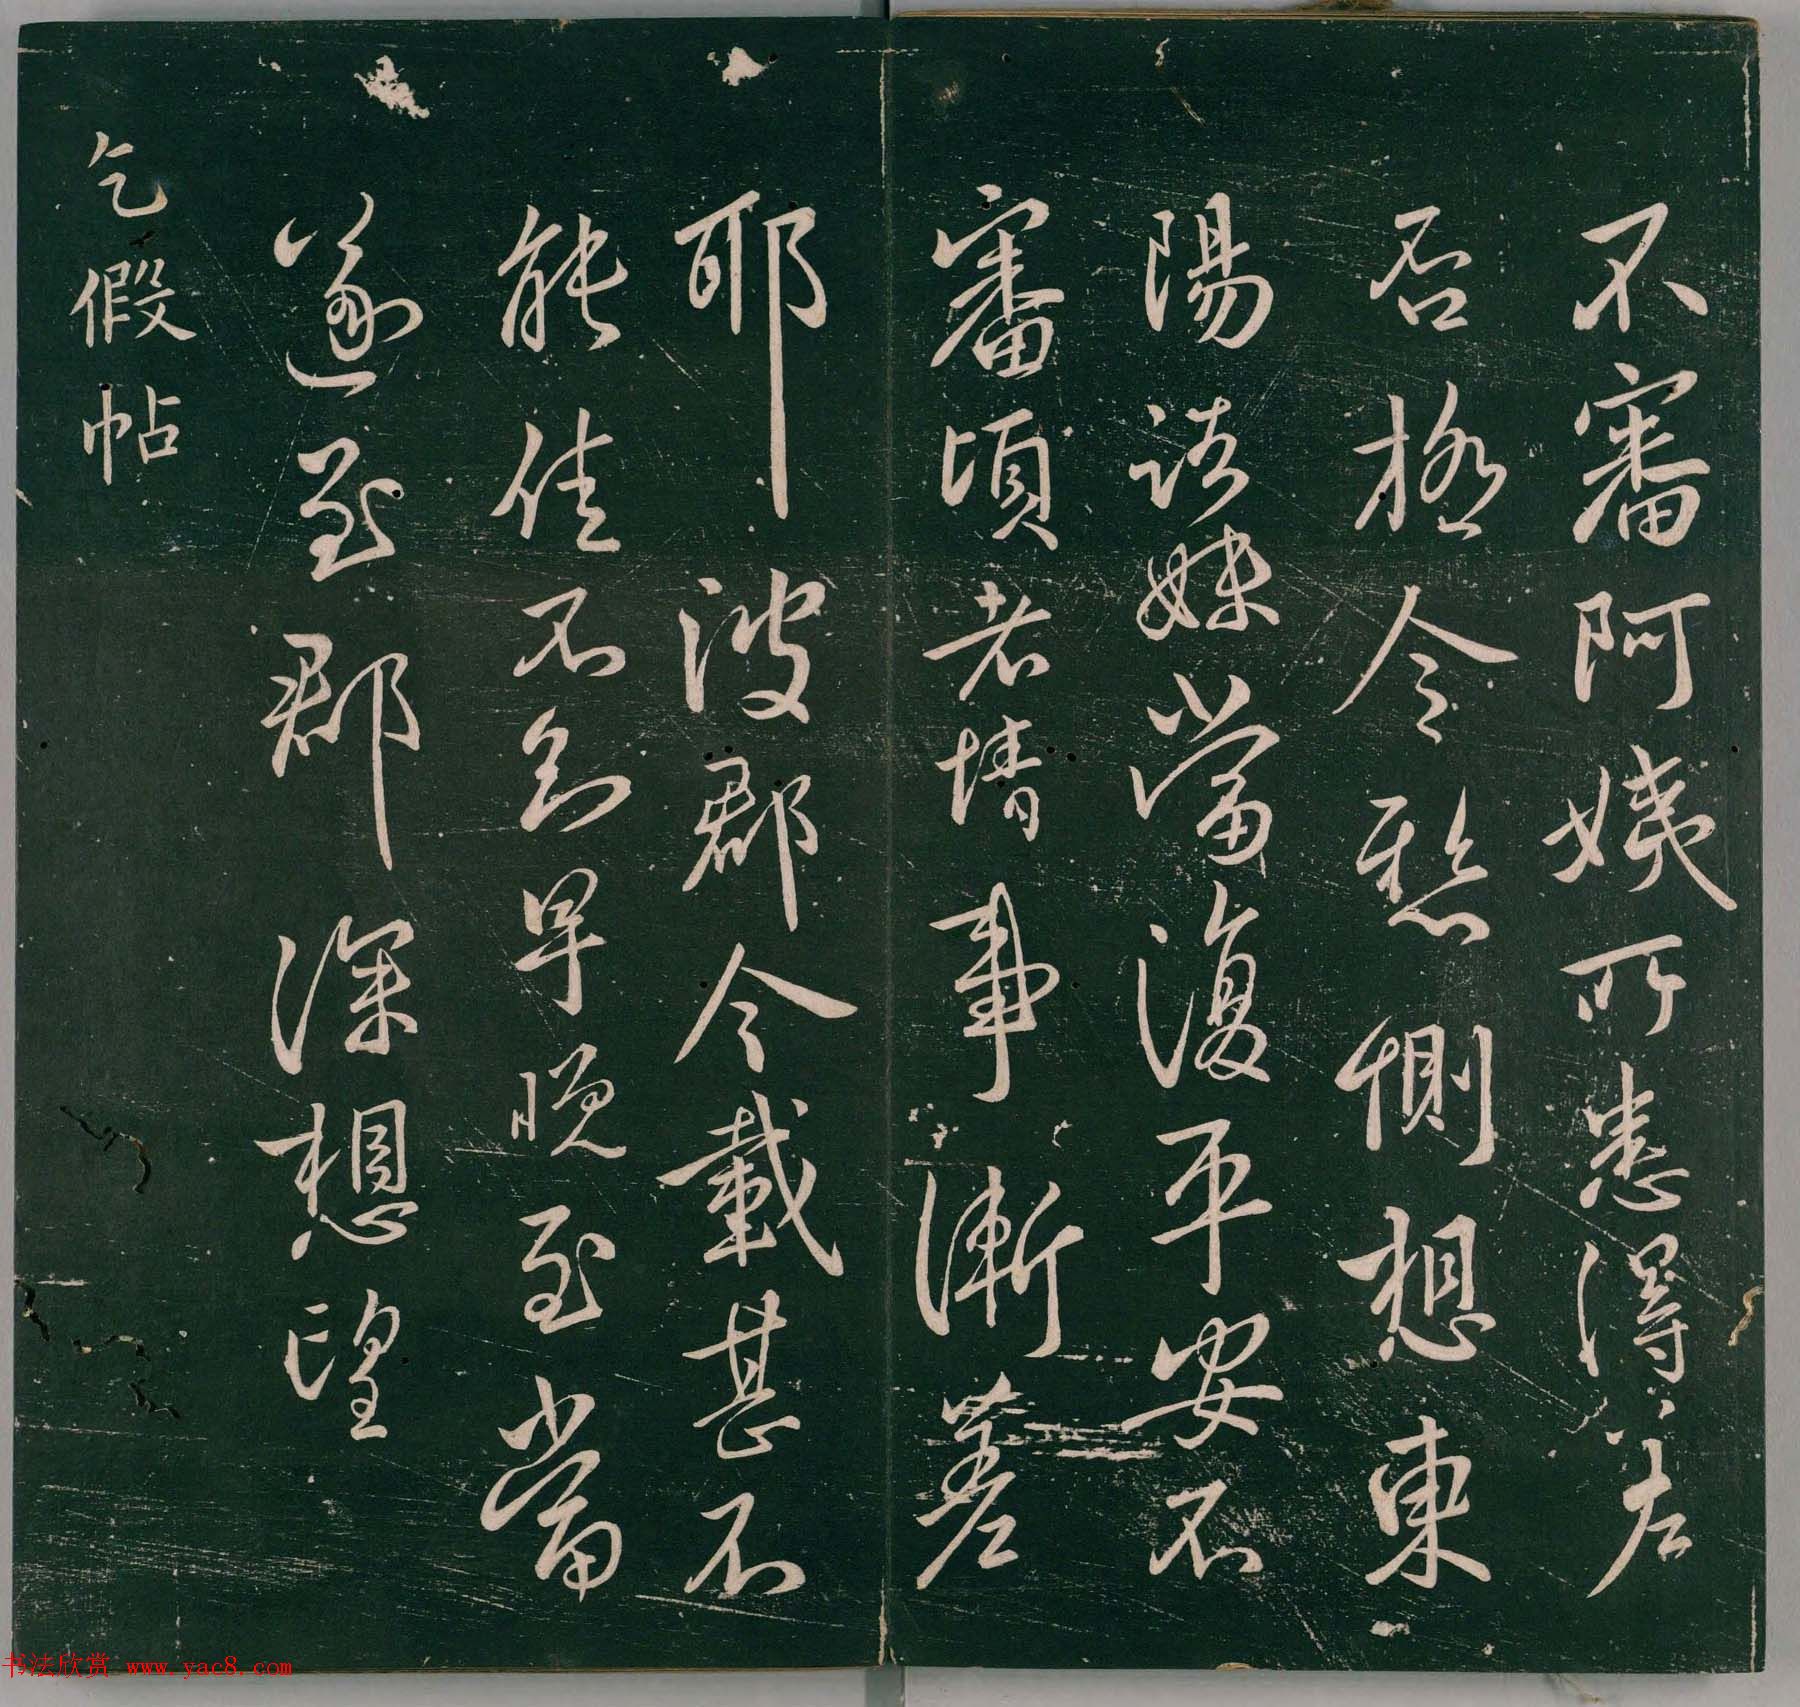 不審阿姨所患得差
否極令愁惻想東
陽諸妹當復平安不
審頃者情事漸差
耶彼郡今載甚不
能佳不知早晚至當
遂至郡深想望
乞假帖
书法欣赏 www.yac8.com